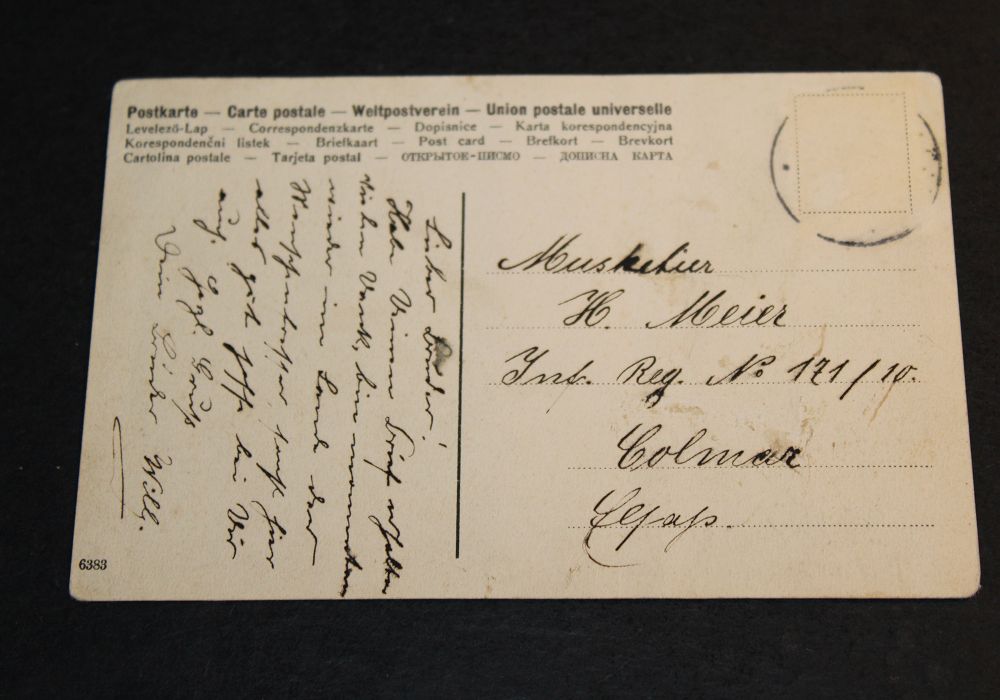 Postkarte — Carte postale — Weltpostverein — Union postale universelle
Levelező-Lap — Correspondenzkarte — Dopisnice — Karta korespondencyjna
Korespondenční listek — Briefkaart — Post card — Brefkort — Brevkort
Cartolina postale — Tarjeta postal — ОТКРЫТОЕ-ПИСМО — ДОПИСНА КАРТА
Lieber Bruder!
Habe Deinen Brief erhalten
vielen Dank, bin momentan
wieder im Land der
sonst hier
alles gut hoffe bei Dir
auch. Gruß
Dein Bruder Willy.
Musketier
H. Meier
Inf. Reg. No 171/10.
Colmar
Elsaß.
6383